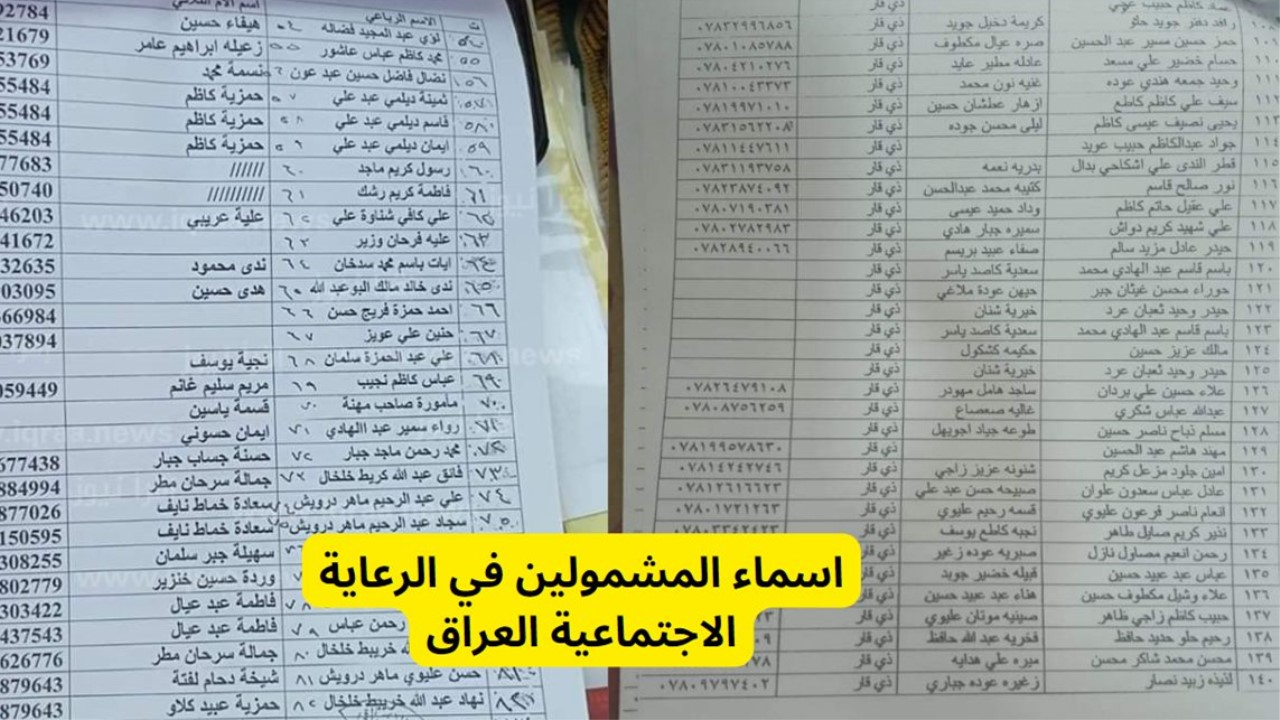 اسماء المشمولين في الرعاية
الاجتماعية العراق
كاظم حبيب عوفي ذي قار
رافد دفتر جويد حلو كريمة دخيل جويد ذي قار ٠٧٨٣٢٩٩٦٨٥٦
١٠٩ حمز حسين مسير عبد الحسين صره عيال مكطوف ذي قار ٠٧٨٠١٠٨٥٧٨٨
١١٠ حسام خضير علي مسعد عادله مطير عايد ذي قار ٠٧٨٠٤٢١٠٢٧٦
١١١ وحيد جمعه هندي عوده غنيه نون محمد ذي قار ٠٧٨١٠٠٤٣٣٧٣
١١٢ سيف علي كاظم كاطع ازهار عطشان حسين ذي قار ٠٧٨١٩٩٧١٠١٠
١١٣ يحيى نصيف عيسى كاظم ليلى محسن جوده ذي قار ٠٧٨٣١٥٦٢٢٠٨
١١٤ جواد عبدالكاظم حبيب عويد ذي قار ٠٧٨١١٤٤٧٦١١
١١٥ قطر الندى علي اشكاحي بدال بدريه نعمه ذي قار ٠٧٨٣١١٩٣٧٥٨
١١٦ نور صالح قاسم كتيبه محمد عبدالحسن ذي قار ٠٧٨٢٣٨٧٤٠٩٢
١١٧ علي عقيل حاتم كاظم وداد حميد عيسى ذي قار ٠٧٨٠٧١٩٠٣٨١
١١٨ علي شهيد كريم دواش سميره جبار هادي ذي قار ٠٧٨٠٢٧٨٢٩٨٣
١١٩ حيدر عادل مزيد سالم صفاء عبيد بريسم ذي قار ٠٧٨٢٨٩٤٠٠٦٦
١٢٠ باسم قاسم عبد الهادي محمد سعدية كاصد ياسر ذي قار
١٢١ حوراء محسن غيثان جبر جيهن عودة ملاغي ذي قار
١٢٢ حيدر وحيد ثعبان عرد خيرية شنان ذي قار
١٢٣ باسم قاسم عبد الهادي محمد سعدية كاصد ياسر ذي قار
١٢٤ مالك عزيز حسين حكيمه كشكول ذي قار
١٢٥ حيدر وحيد ثعبان عرد خيرية شنان ذي قار
١٢٦ علاء حسين علي بردان ساجد هامل مهودر ذي قار ٠٧٨٢٦٤٧٩١٠٨
١٢٧ عبدالله عباس شكري غاليه صعصاع ذي قار ٠٧٨٠٨٧٥٦٢٥٩
١٢٨ مسلم ذباح ناصر حسين طوعه جياد اجويهل ذي قار
١٢٩ مهند هاشم عبد الحسين ذي قار ٠٧٨١٩٩٥٧٨٦٣٠
١٣٠ امين جلود مزعل كريم شنونه عزيز زاجي ذي قار ٠٧٨١٤٢٤٢٧٤٦
١٣١ عادل عباس سعدون علوان صبيحه حسن عبد علي ذي قار ٠٧٨١٢٦١٦٦٢٣
١٣٢ انعام ناصر فرعون عليوي قسمه رحيم عليوي ذي قار ٠٧٨٠١٧٢١٢٦٣
١٣٣ نذير كريم صايل طاهر نجبه كاطع يوسف ذي قار ٠٧٨٠٣٣٤٢٤٢٣
١٣٤ رحمن انعيم مصاول نازل صبريه عوده زغير ذي قار
١٣٥ عباس عبد عبيد حسين فبيله خضير جويد ذي قار
١٣٦ علاء وشيل مكطوف حسين هناء عبد عبيد حسين ذي قار
١٣٧ حبيب كاظم زاجي ظاهر صينيه موتان عليوي ذي قار
١٣٨ رحيم حلو حديد حافظ فخريه عبد الله حافظ ذي قار
١٣٩ محسن محمد شاكر محسن ميره علي هدايه ذي قار
١٤٠ لذيذه زبيد نصار زغيره عوده جباري ذي قار ٠٧٨٠٩٧٩٧٤٠٢
ت الاسم الرباعي اسم الام الثلاثي
٥٤ لؤي عبد المجيد فضاله هيفاء حسين 92784
٥٥ محمد كاظم عباس عاشور زعيله ابراهيم عامر 21679
٥٦ نضال فاضل حسين عبد عون نسمة محمد 53769
٥٧ ثمينة ديلمي عبد علي حمزية كاظم 55484
٥٨ قاسم ديلمي عبد علي حمزية كاظم 55484
٥٩ ايمان ديلمي عبد علي حمزية كاظم 55484
٦٠ رسول كريم ماجد ////// 77683
٦١ فاطمة كريم رشك ////////// 50740
علي كافي شناوة علي علية عريبي 46203
٦٣ عليه فرحان وزير 41672
٦٤ ايات باسم محمد سدخان ندى محمود 32635
٦٥ ندى خالد مالك البوعبد الله هدى حسين 03095
٦٦ احمد حمزة فريج حسن 666984
٦٧ حنين علي عويز 037894
٦٨ علي عبد الحمزة سلمان نجية يوسف
٦٩ عباس كاظم نجيب مريم سليم غانم 059449
٧٠ مامورة صاحب مهنة قسمة ياسين
٧١ رواء سمير عبد الهادي ايمان حسوني
٧٢ محمد رحمن ماجد جبار حسنة جساب جبار 677438
٧٣ فائق عبد الله كريط خلخال جمالة سرحان مطر 884994
٧٤ علي عبد الرحيم ماهر درويش سعادة خماط نايف 877026
٧٥ سجاد عبد الرحيم ماهر درويش سعادة خماط نايف 150595
سهيلة جبر سلمان 308255
وردة حسين خنزير 802779
٧٨ فاطمة عبد عيال 303422
٧٩ رحمن عباس فاطمة عبد عيال 437543
٨٠ خريبط خلخال جمالة سرحان مطر 626776
٨١ حسن عليوي ماهر درويش شيخة دحام لفتة 879643
٨٢ نهاد عبد الله خريبط خلخال حمزية عبيد كلاو 879643